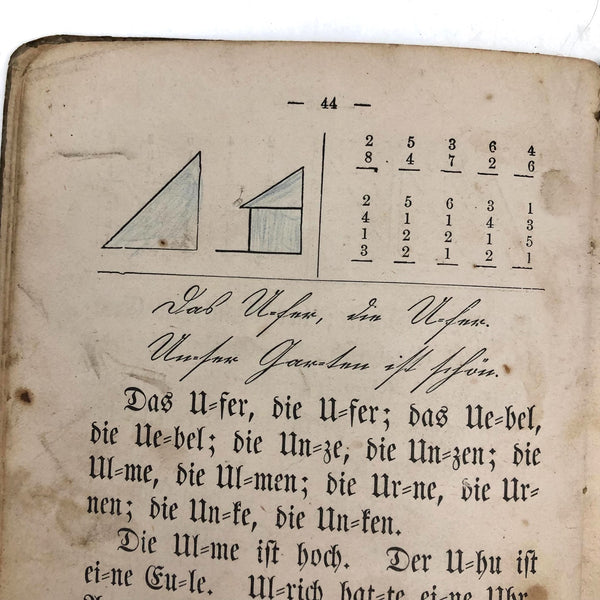 — 44 —
2 5 3 6 4
8 4 7 2 6
2 5 6 3 1
4 1 1 4 3
1 2 2 1 5
3 2 1 2 1
Das U=fer, die U=fer.
Un=ser Gar=ten ist schön.
Das U=fer, die U=fer; das Ue=bel,
die Ue=bel; die Un=ze, die Un=zen; die
Ul=me, die Ul=men; die Ur=ne, die Ur=
nen; die Un=ke, die Un=ken.
Die Ul=me ist hoch. Der U=hu ist
ei=ne Eu=le. Ul=rich hat=te ei=ne Uhr.